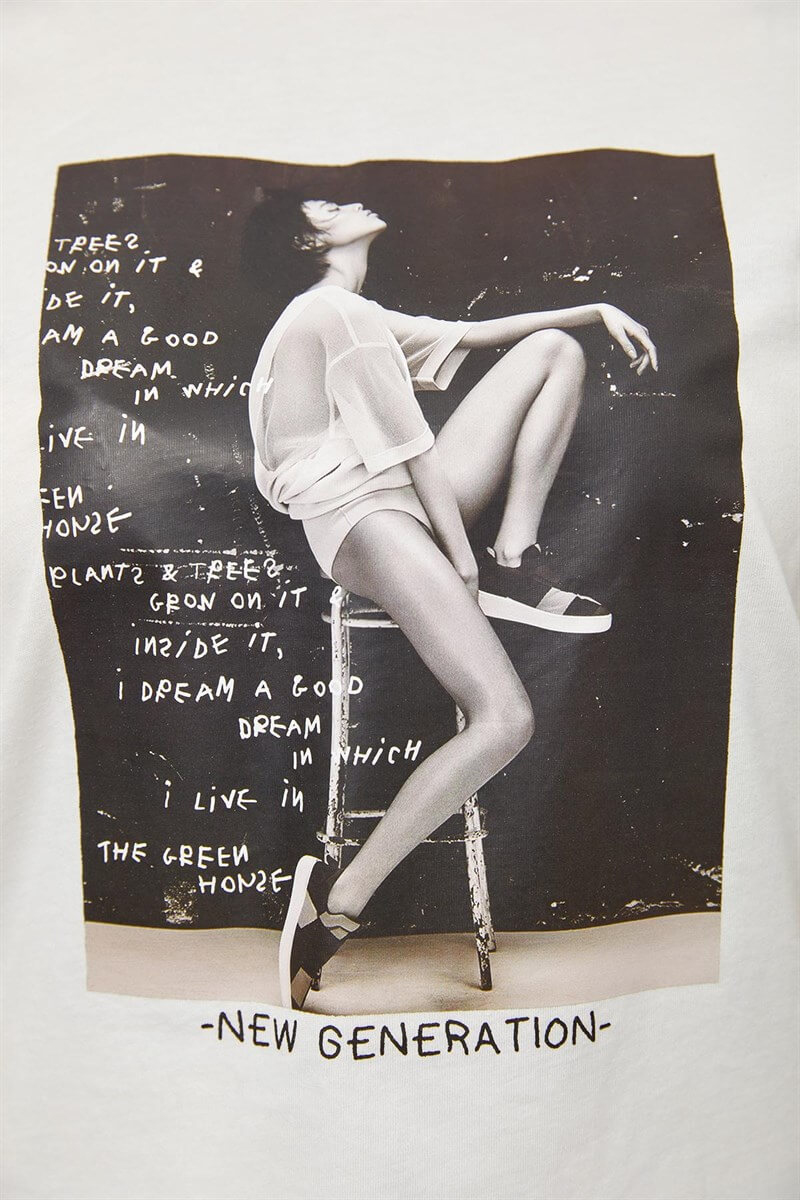 TREES
ON ON IT &
DE IT,
AM A GOOD
DREAM
IN WHICH
LIVE IN
EEN
HONSE
PLANTS & TREES
GRON ON IT &
INSIDE IT,
i DREAM A GOOD
DREAM
IN WHICH
i LiVE iN
THE GREEN
HONSE
-NEW GENERATION-